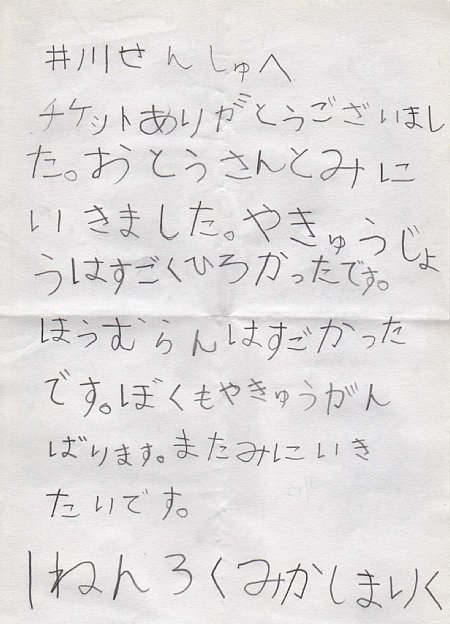 井川せんしゅへ
チケットありがとうございまし
た。おとうさんとみに
いきました。やきゅうじょ
うはすごくひろかったです。
ほうむらんはすごかった
です。ぼくもやきゅうがん
ばります。またみにいき
たいです。
1ねんろくみかしまりく